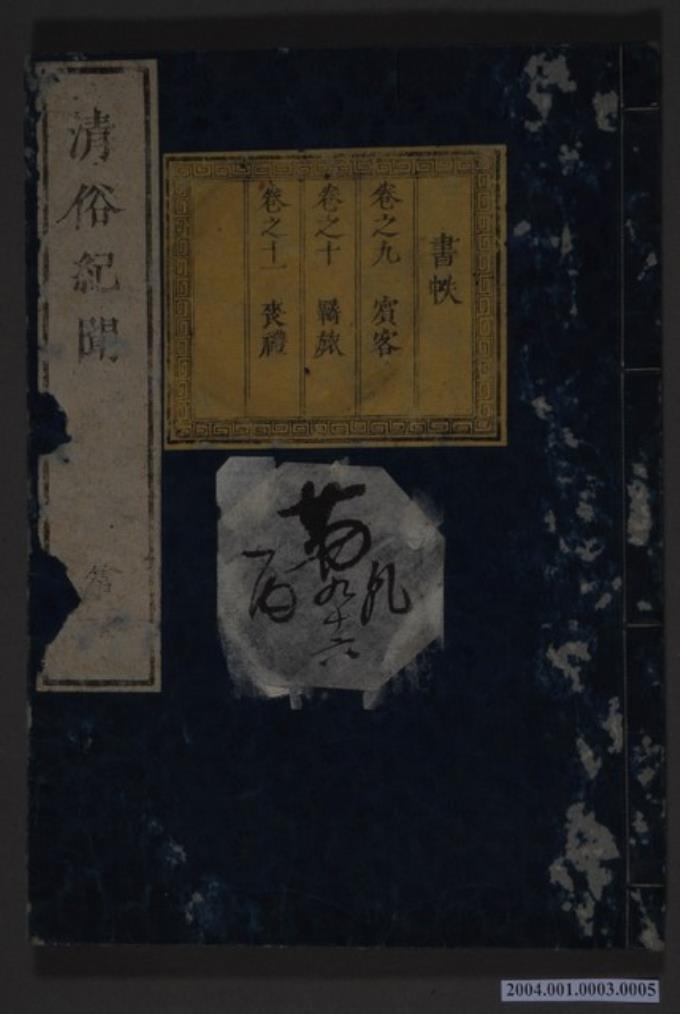 清俗紀聞
書帙
卷之九 賓客
卷之十 羇旅
卷之十一 喪禮
九十六
2004.001.0003.0005